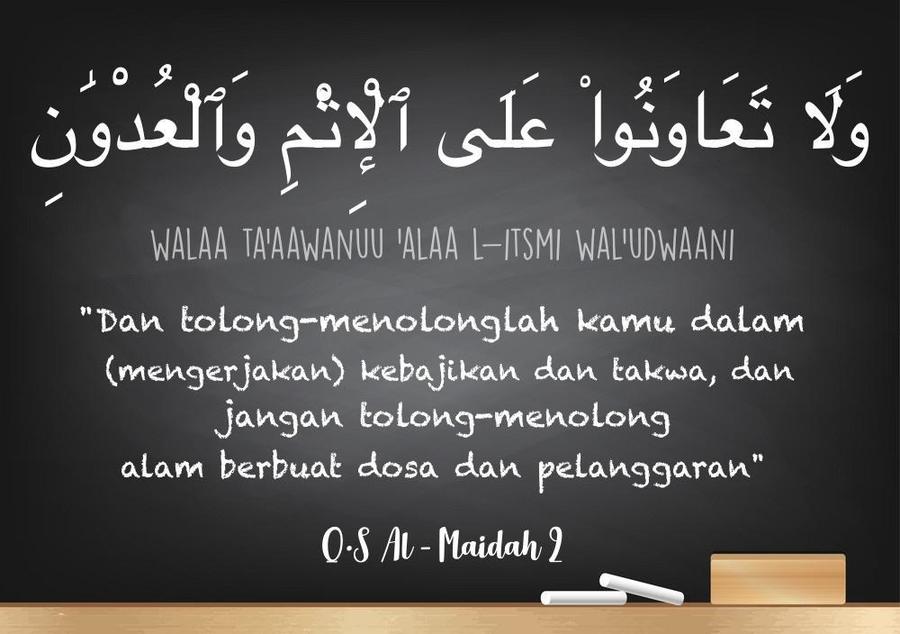 وَلَا تَعَاوَنُوا۟ عَلَى ٱلْإِثْمِ وَٱلْعُدْوَٰنِ
WALAA TA'AAWANUU 'ALAA L-ITSMI WAL'UDWAANI
"Dan tolong-menolonglah kamu dalam
(mengerjakan) kebajikan dan takwa, dan
jangan tolong-menolong
alam berbuat dosa dan pelanggaran"
Q.S Al - Maidah 2